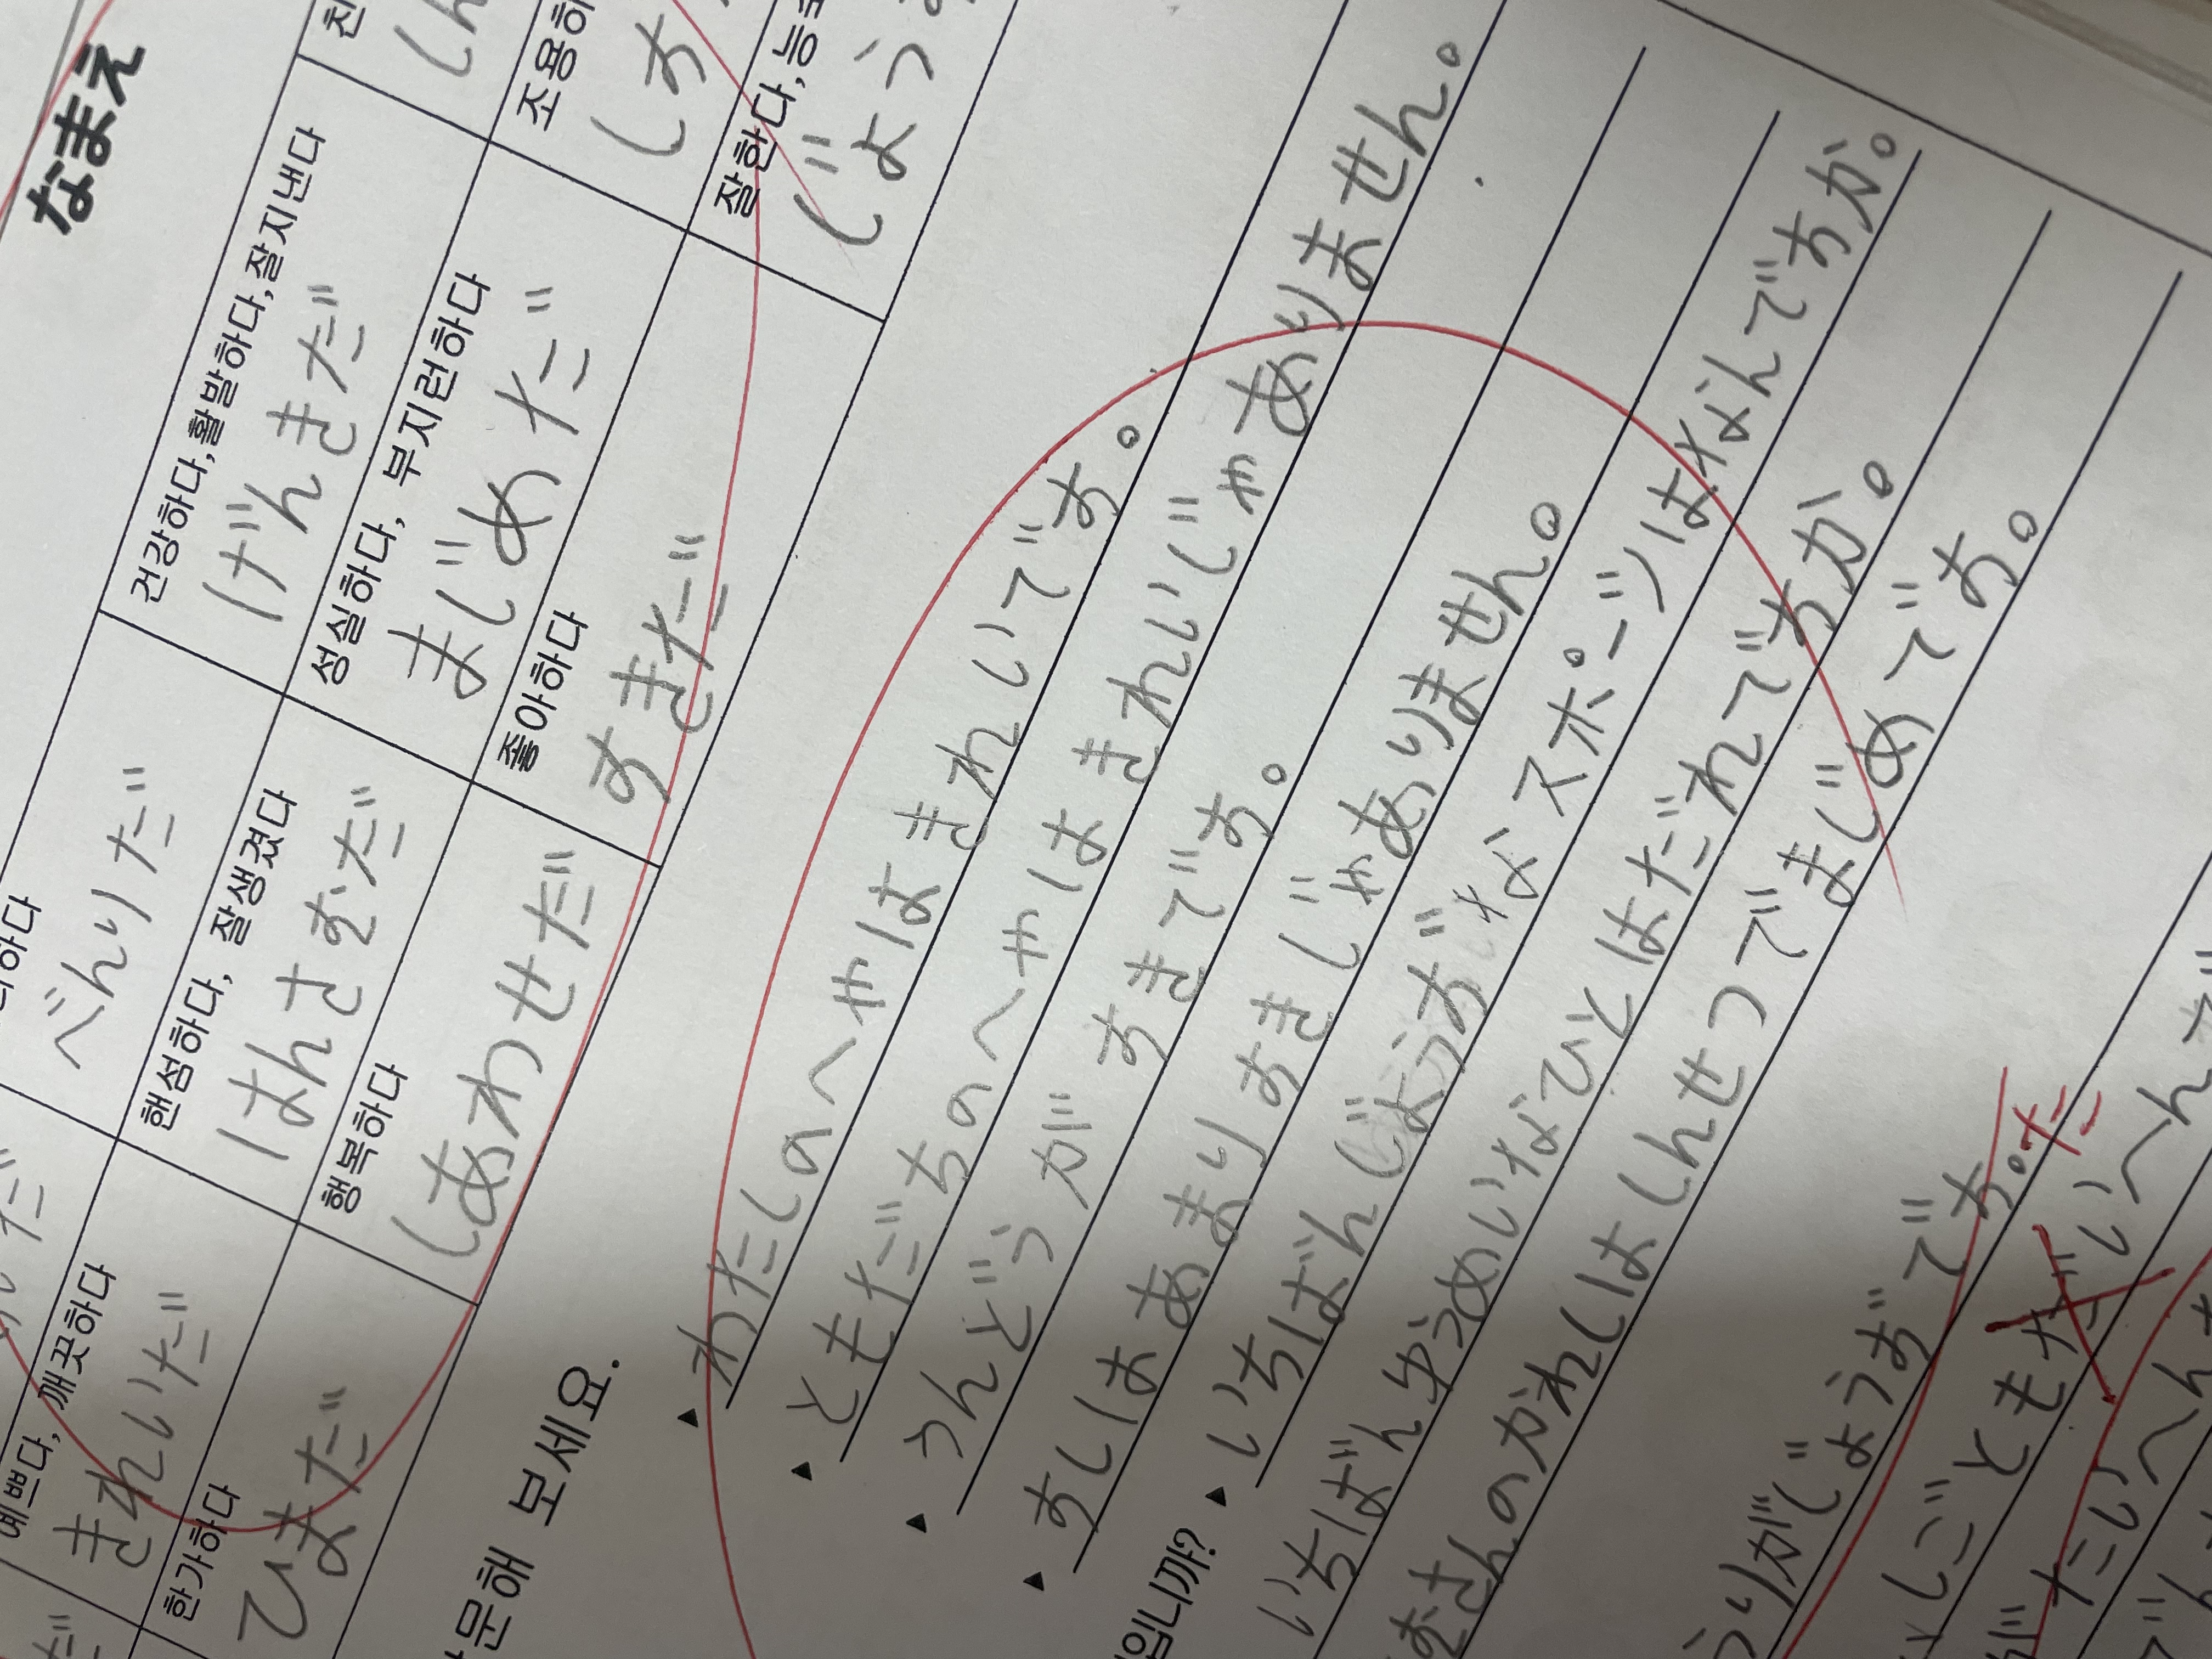 なまえ
건강하다,활발하다,잘지낸다
べんりだ
げんきだ
しん
예쁘다, 깨끗하다
핸섬하다, 잘생겼다
성실하다, 부지런하다
きれいだ
はんさむだ
まじめだ
한가하다
행복하다
좋아하다
잘한다,능
ひまだ
しあわせだ
すきだ
じょうず
문해 보세요.
▲ わたしのへやはきれいです。
▲ ともだちのへやはきれいじゃありません。
▲ うんどうが すきです。
▲ すしはあまりすきじゃありません。
입니까? ▲ いちばんじょうずなスポーツはなんですか。
いちばんゆうめいなひとはだれですか。
さんのかれしはしんせつでまじめです。
うりがじょうずです。
しごともたいへん
だ
たいへん